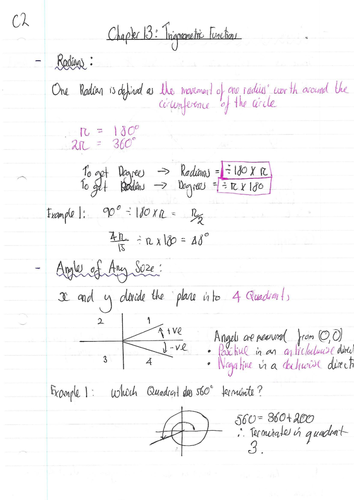 C2
Chapter 13: Trigonometric Functions
- Radians:
One Radian is defined as the movement of one radius' worth around the
circumference of the circle
π = 180°
2π = 360°
To get Degrees → Radians = ÷180 × π
To get Radian → Degrees = ÷ π × 180
Example 1: 90° ÷ 180 × π = π/2
4π/15 ÷ π × 180 = 48°
- Angles of Any Size:
x and y divide the plane into 4 Quadrants
2 1
+ve
-ve
3 4
Angels are measured from (0,0)
• Positive in an anticlockwise direc
• Negative in a clockwise direct
Example 1: which Quadrant does 560° terminate?
560 = 360 + 200
∴ Terminates in quadrant
3.